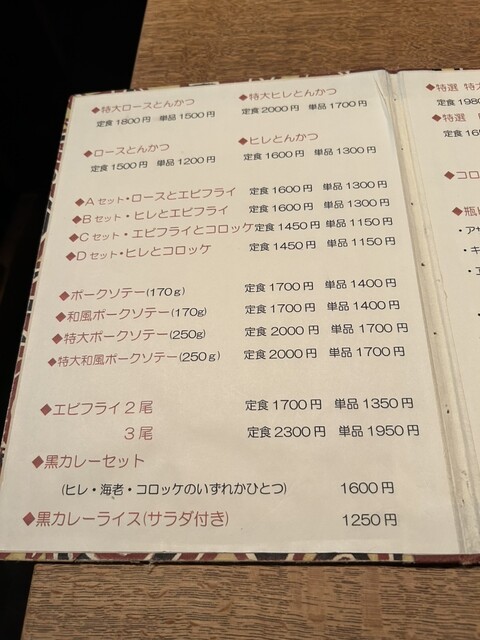 ◆特大ロースとんかつ
定食1800円 単品1500円
◆特大ヒレとんかつ
定食2000円 単品1700円
◆ロースとんかつ
定食1500円 単品1200円
◆ヒレとんかつ
定食1600円 単品1300円
◆Aセット・ロースとエビフライ 定食1600円 単品1300円
◆Bセット・ヒレとエビフライ 定食1600円 単品1300円
◆Cセット・エビフライとコロッケ 定食1450円 単品1150円
◆Dセット・ヒレとコロッケ 定食1450円 単品1150円
◆ポークソテー(170g) 定食1700円 単品1400円
◆和風ポークソテー(170g) 定食1700円 単品1400円
◆特大ポークソテー(250g) 定食2000円 単品1700円
◆特大和風ポークソテー(250g) 定食2000円 単品1700円
◆エビフライ2尾 定食1700円 単品1350円
3尾 定食2300円 単品1950円
◆黒カレーセット
(ヒレ・海老・コロッケのいずれかひとつ) 1600円
◆黒カレーライス(サラダ付き) 1250円
◆特選 特
定食1980
◆特選
定食
◆コロ
◆瓶
・ア
・キ